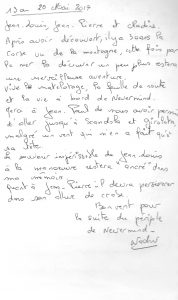 20 Mai 2017
Jean-Louis, Jean-Pierre et
Après avoir découvert, il y a 
Corse vu de la montagne, cette fois par
la mer Pô découvrir un peu plus
une merveilleuse aventure.
Vive le matelotage, la feuille de route
et la vie à bord de Nevermind.
à Jean-Paul de nous avoir permis
d'aller jusqu'à Scandola et Girolata
malgré un vent qui n'en a fait qu'à
sa tête.
La saveur de Jean-Louis
à la manoeuvre restera ancré dans
ma mémoire
Quant à Jean-Pierre il devra
dans son allure de croix.
Bon vent pour
la suite du périple
de Nevermind.